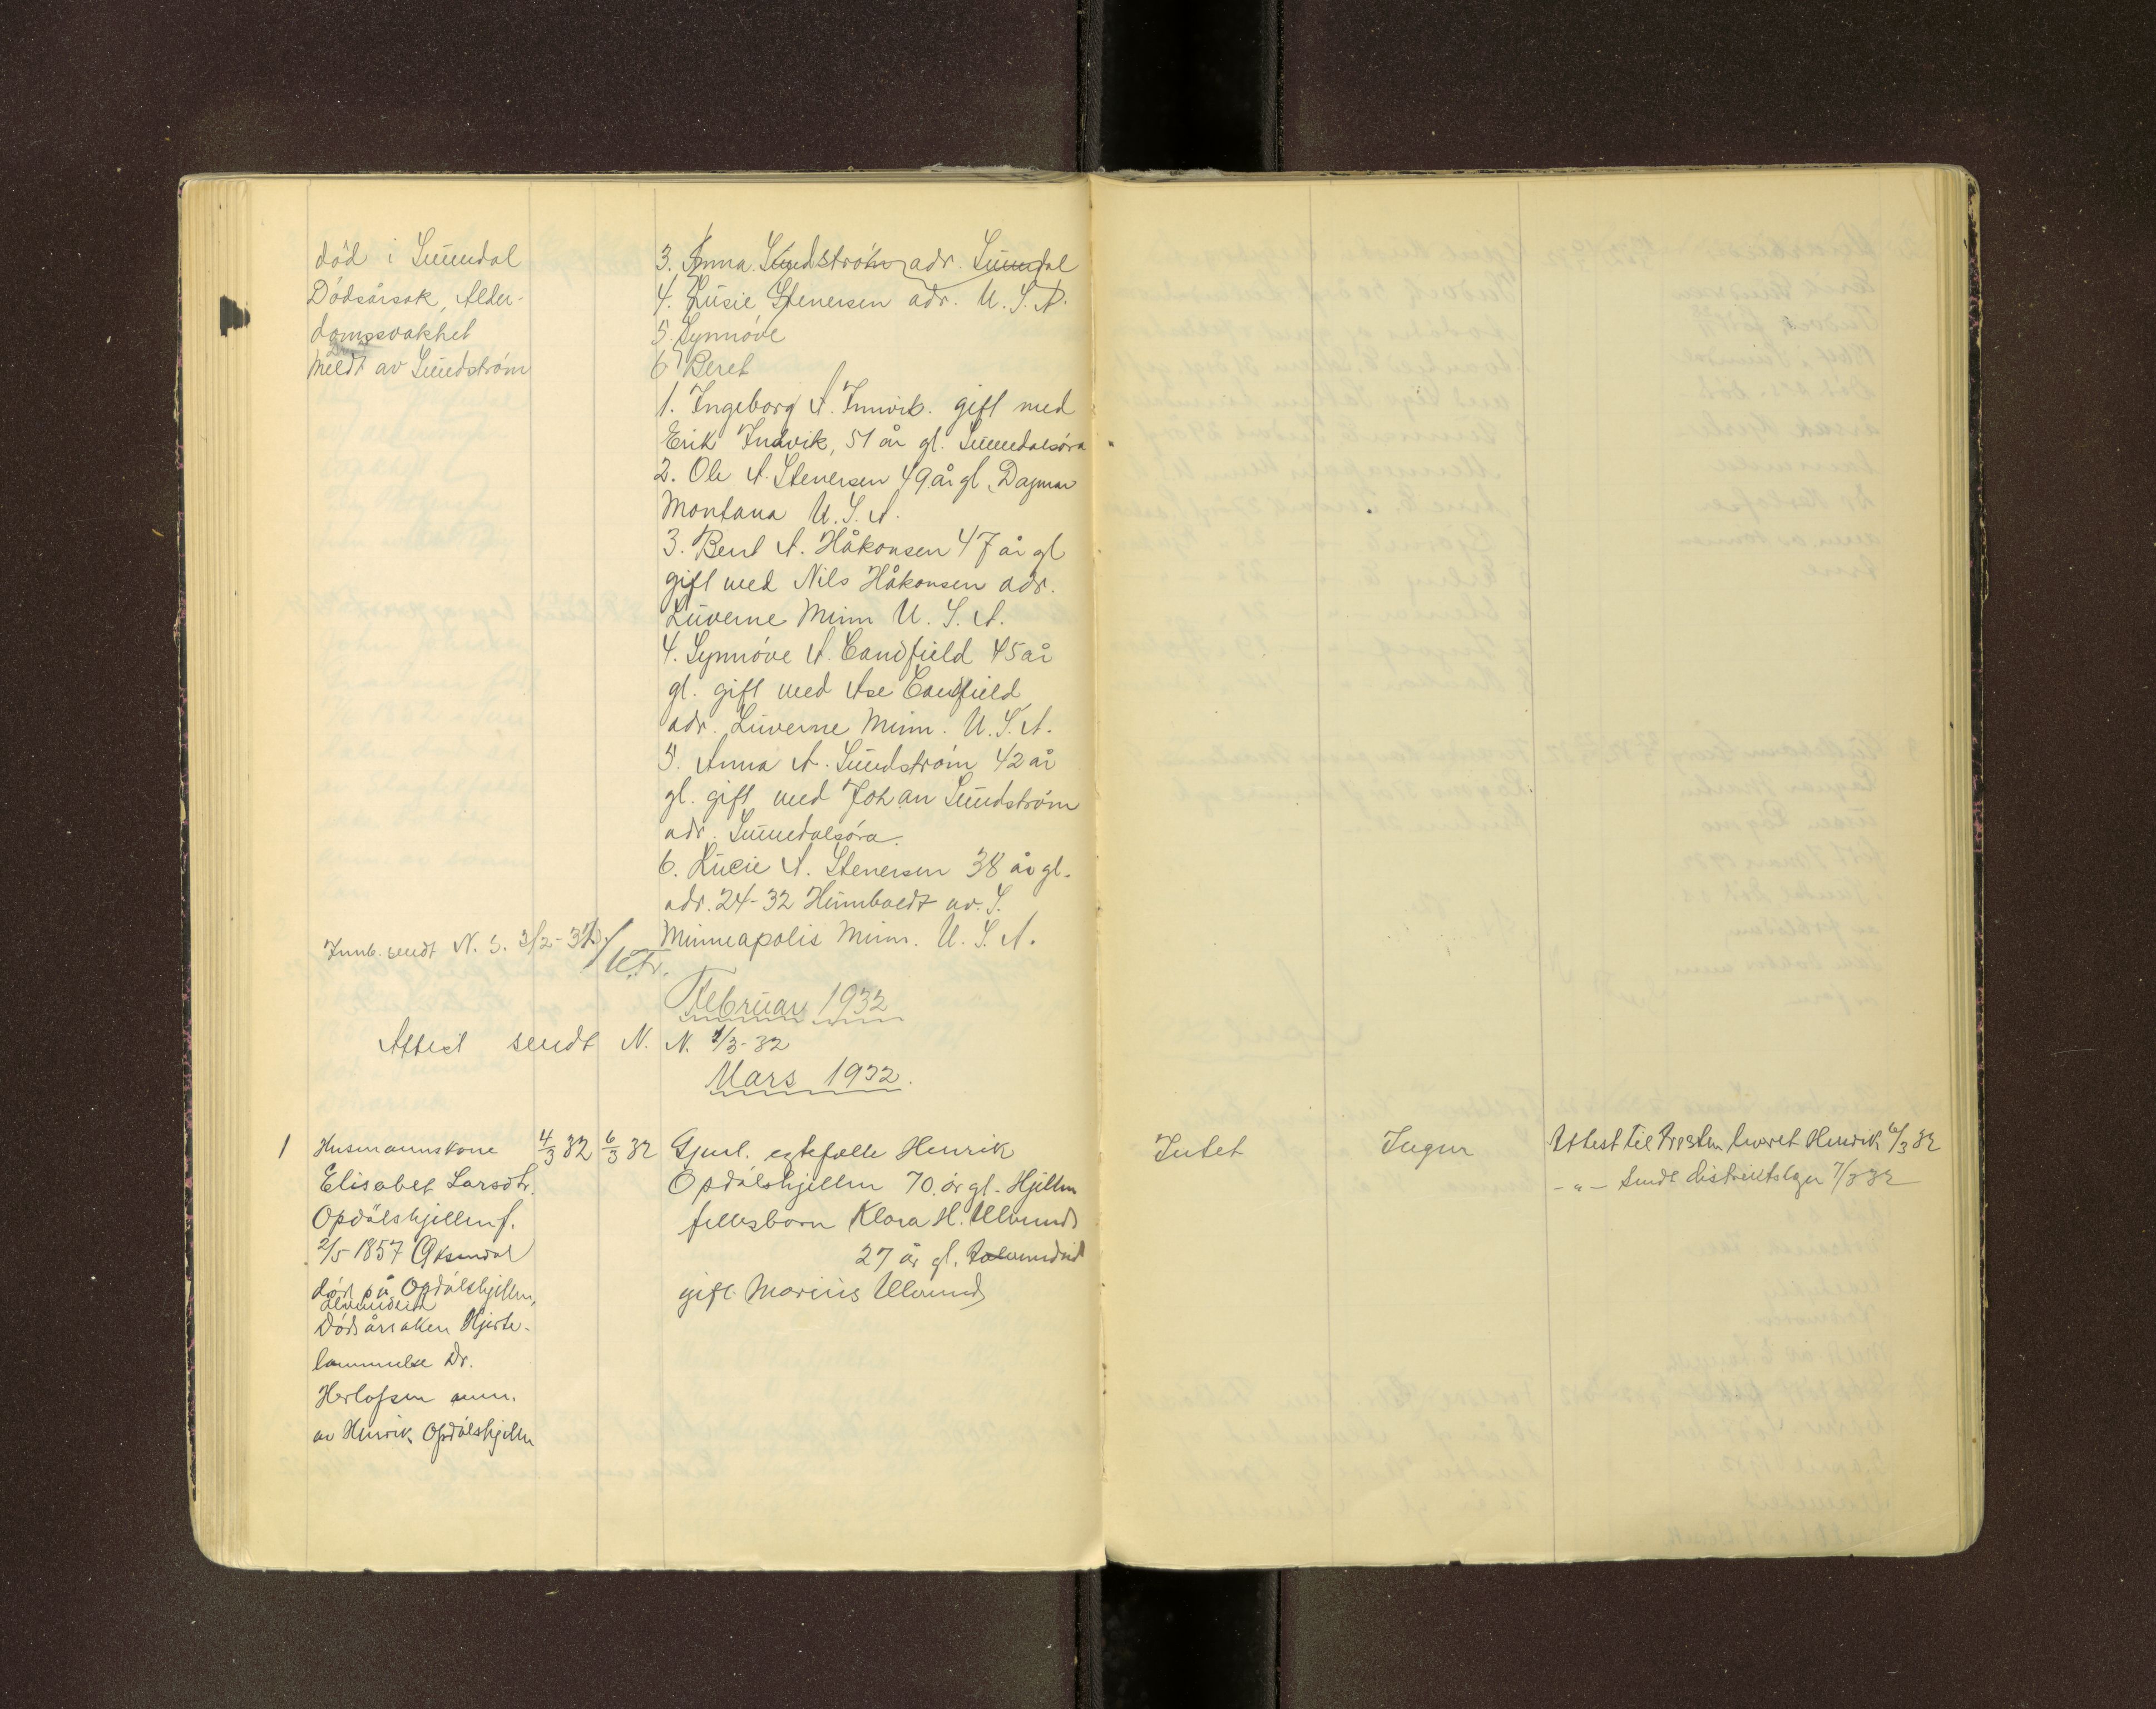 død i Sunndal
Dødsårsak, Alder-
domssvakhet
Meldt av Sundstrøm
3. Anna Sundstrøm adr. Sunndal
4. Lusie Stenersen adr. U. S. A.
5. Synnøve
6 Beret
1. Ingeborg A. Innvik. gift med
Erik Innvik, 51 år gl. Sunndalsøra
2. Ole A. Stenersen 49 år gl, Dagmar
Montana U. S. A.
3. Berit A. Håkonsen 47 år gl
gift med Nils Håkonsen adr.
Luverne Minn U. S. A.
4. Synnøve A. Candfield 45 år
gl. gift med Ase Candfield
adr. Luverne Minn. U. S. A.
5. Anna A. Sundstrøm 42 år
gl. gift med Johan Sundstrøm
adr. Sunndalsøra.
6. Lucie A. Stenersen 38 år gl.
adr. 24-32 Humboldt av. S.
Minneapolis Minn. U. S. A.
Innb. sendt N. S. 3/2-32
Februar 1932
Attest sendt N. N. 1/3-32
Mars 1932.
1 Husmannskone 4/3 32 6/3 32
Elisabet Larsdtr.
Opdalshjellen f.
2/5 1857 Øksendal
død på Opdålshjellen,
Ålvundeid
Dødsårsaken Hjerte-
lammelse Dr.
Herlofsen anm.
av Henrik Opdalshjellen
Gjenl. egtefelle Henrik
Opdålshjellen 70 år gl. Hjellen
fellesbarn Klara H. Ulvund
27 år gl. Ålvundeid
gift Marius Ulvund
Intet
Ingen
Attest til Presten levert Henrik 6/3 32
- " - Sendt distriktslegen 7/3 32